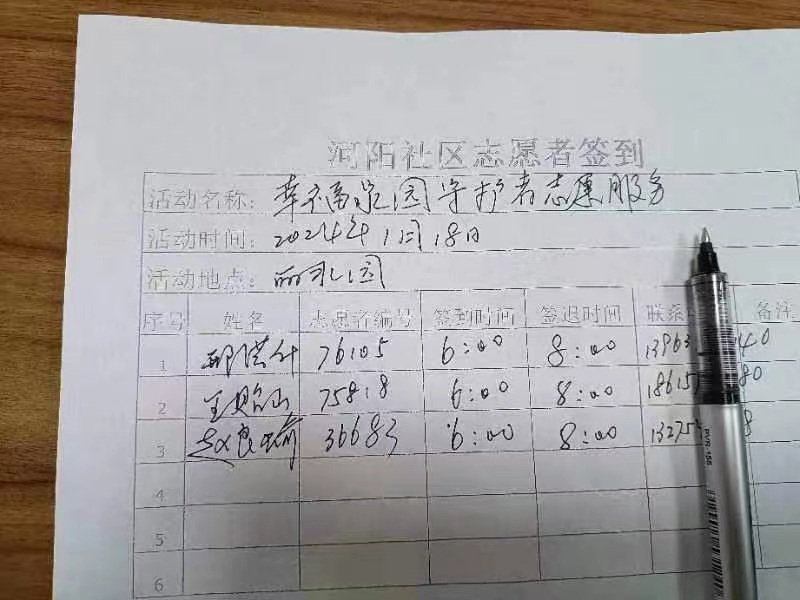 河阳社区志愿者签到
活动名称：幸福家园守护者志愿服务
活动时间：2024年1月18日
活动地点：丽水公园
序号 姓名 志愿者编号 签到时间 签退时间 联系 备注
1 76105 6:00 8:00 13963 40
2 王贻山 75818 6:00 8:00 18615 80
3 赵良瑜 36683 6:00 8:00 13275 8
4
5
6
PVR-155